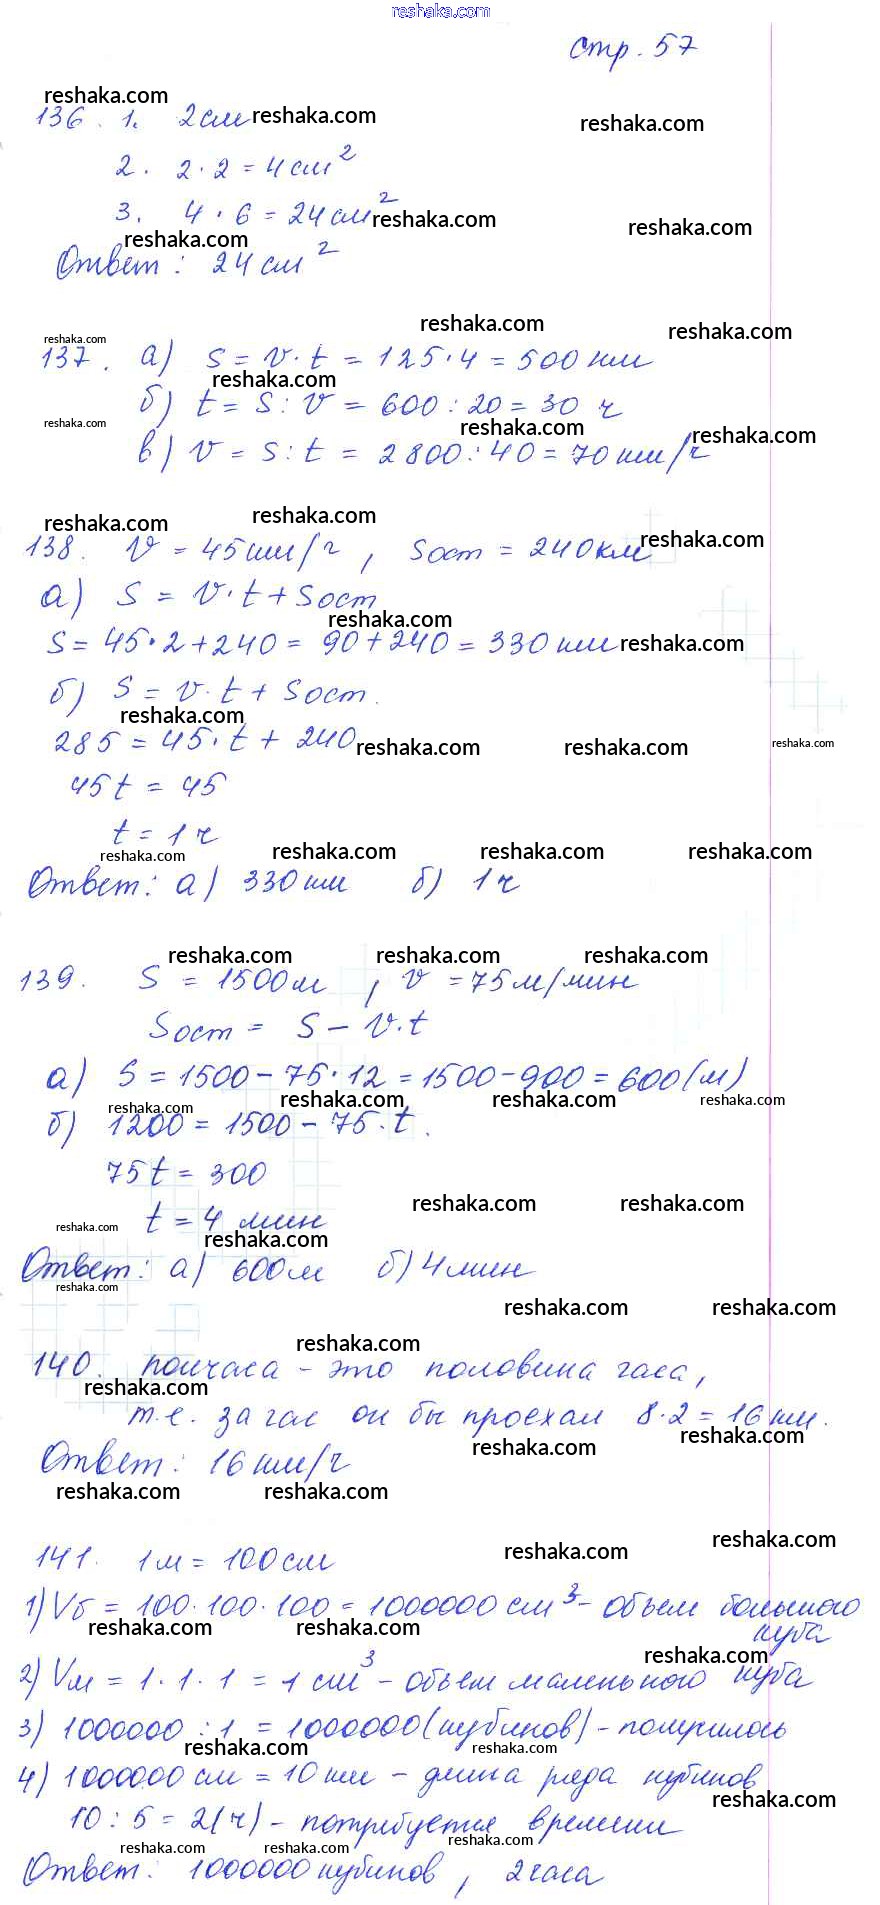 reshaka.com
стр. 57
reshaka.com
136. 1. 2см reshaka.com reshaka.com
2. 2·2=4см²
3. 4·6=24см² reshaka.com reshaka.com
reshaka.com
Ответ: 24см²
reshaka.com reshaka.com
reshaka.com
137. а) S=v·t=125·4=500км
reshaka.com
б) t=S:v=600:20=30 ч
reshaka.com reshaka.com reshaka.com
в) v=S:t=2800:40=70км/ч
reshaka.com reshaka.com reshaka.com
138. v=45км/ч, Sост=240км
а) S=v·t+Sост
reshaka.com
S=45·2+240=90+240=330км reshaka.com
б) S=v·t+Sост.
reshaka.com
285=45·t+240 reshaka.com reshaka.com reshaka.com
45t=45
t=1ч
reshaka.com reshaka.com reshaka.com reshaka.com
Ответ: а) 330км б) 1ч
reshaka.com reshaka.com reshaka.com
139. S=1500м, v=75м/мин
Sост=S-v·t
а) S=1500-75·12=1500-900=600(м)
reshaka.com reshaka.com reshaka.com reshaka.com
б) 1200=1500-75·t.
75t=300
reshaka.com reshaka.com
t=4 мин
reshaka.com reshaka.com
Ответ: а) 600м б) 4мин
reshaka.com
reshaka.com reshaka.com
reshaka.com
140. полчаса - это половина часа,
reshaka.com
т.е. за час он бы проехал 8·2=16км.
reshaka.com reshaka.com
Ответ: 16км/ч
reshaka.com reshaka.com
reshaka.com reshaka.com
141. 1м=100см
1) Vб=100·100·100=1000000см³- объем большого
куба
reshaka.com reshaka.com
reshaka.com
2) Vм=1·1·1=1см³- объем маленького куба
3) 1000000:1=1000000(кубиков)- получилось
reshaka.com reshaka.com
4) 1000000см=10км- длина ряда кубиков
reshaka.com
10:5=2(ч)- потребуется времени
reshaka.com reshaka.com reshaka.com
Ответ: 1000000 кубиков, 2 часа